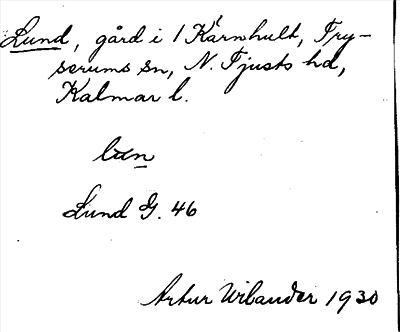 Lund, gård i 1 Kärnhult, Try-
serums sn, N. Tjusts hd,
Kalmar l.
lun
Lund G. 46
Artur Wilander 1930